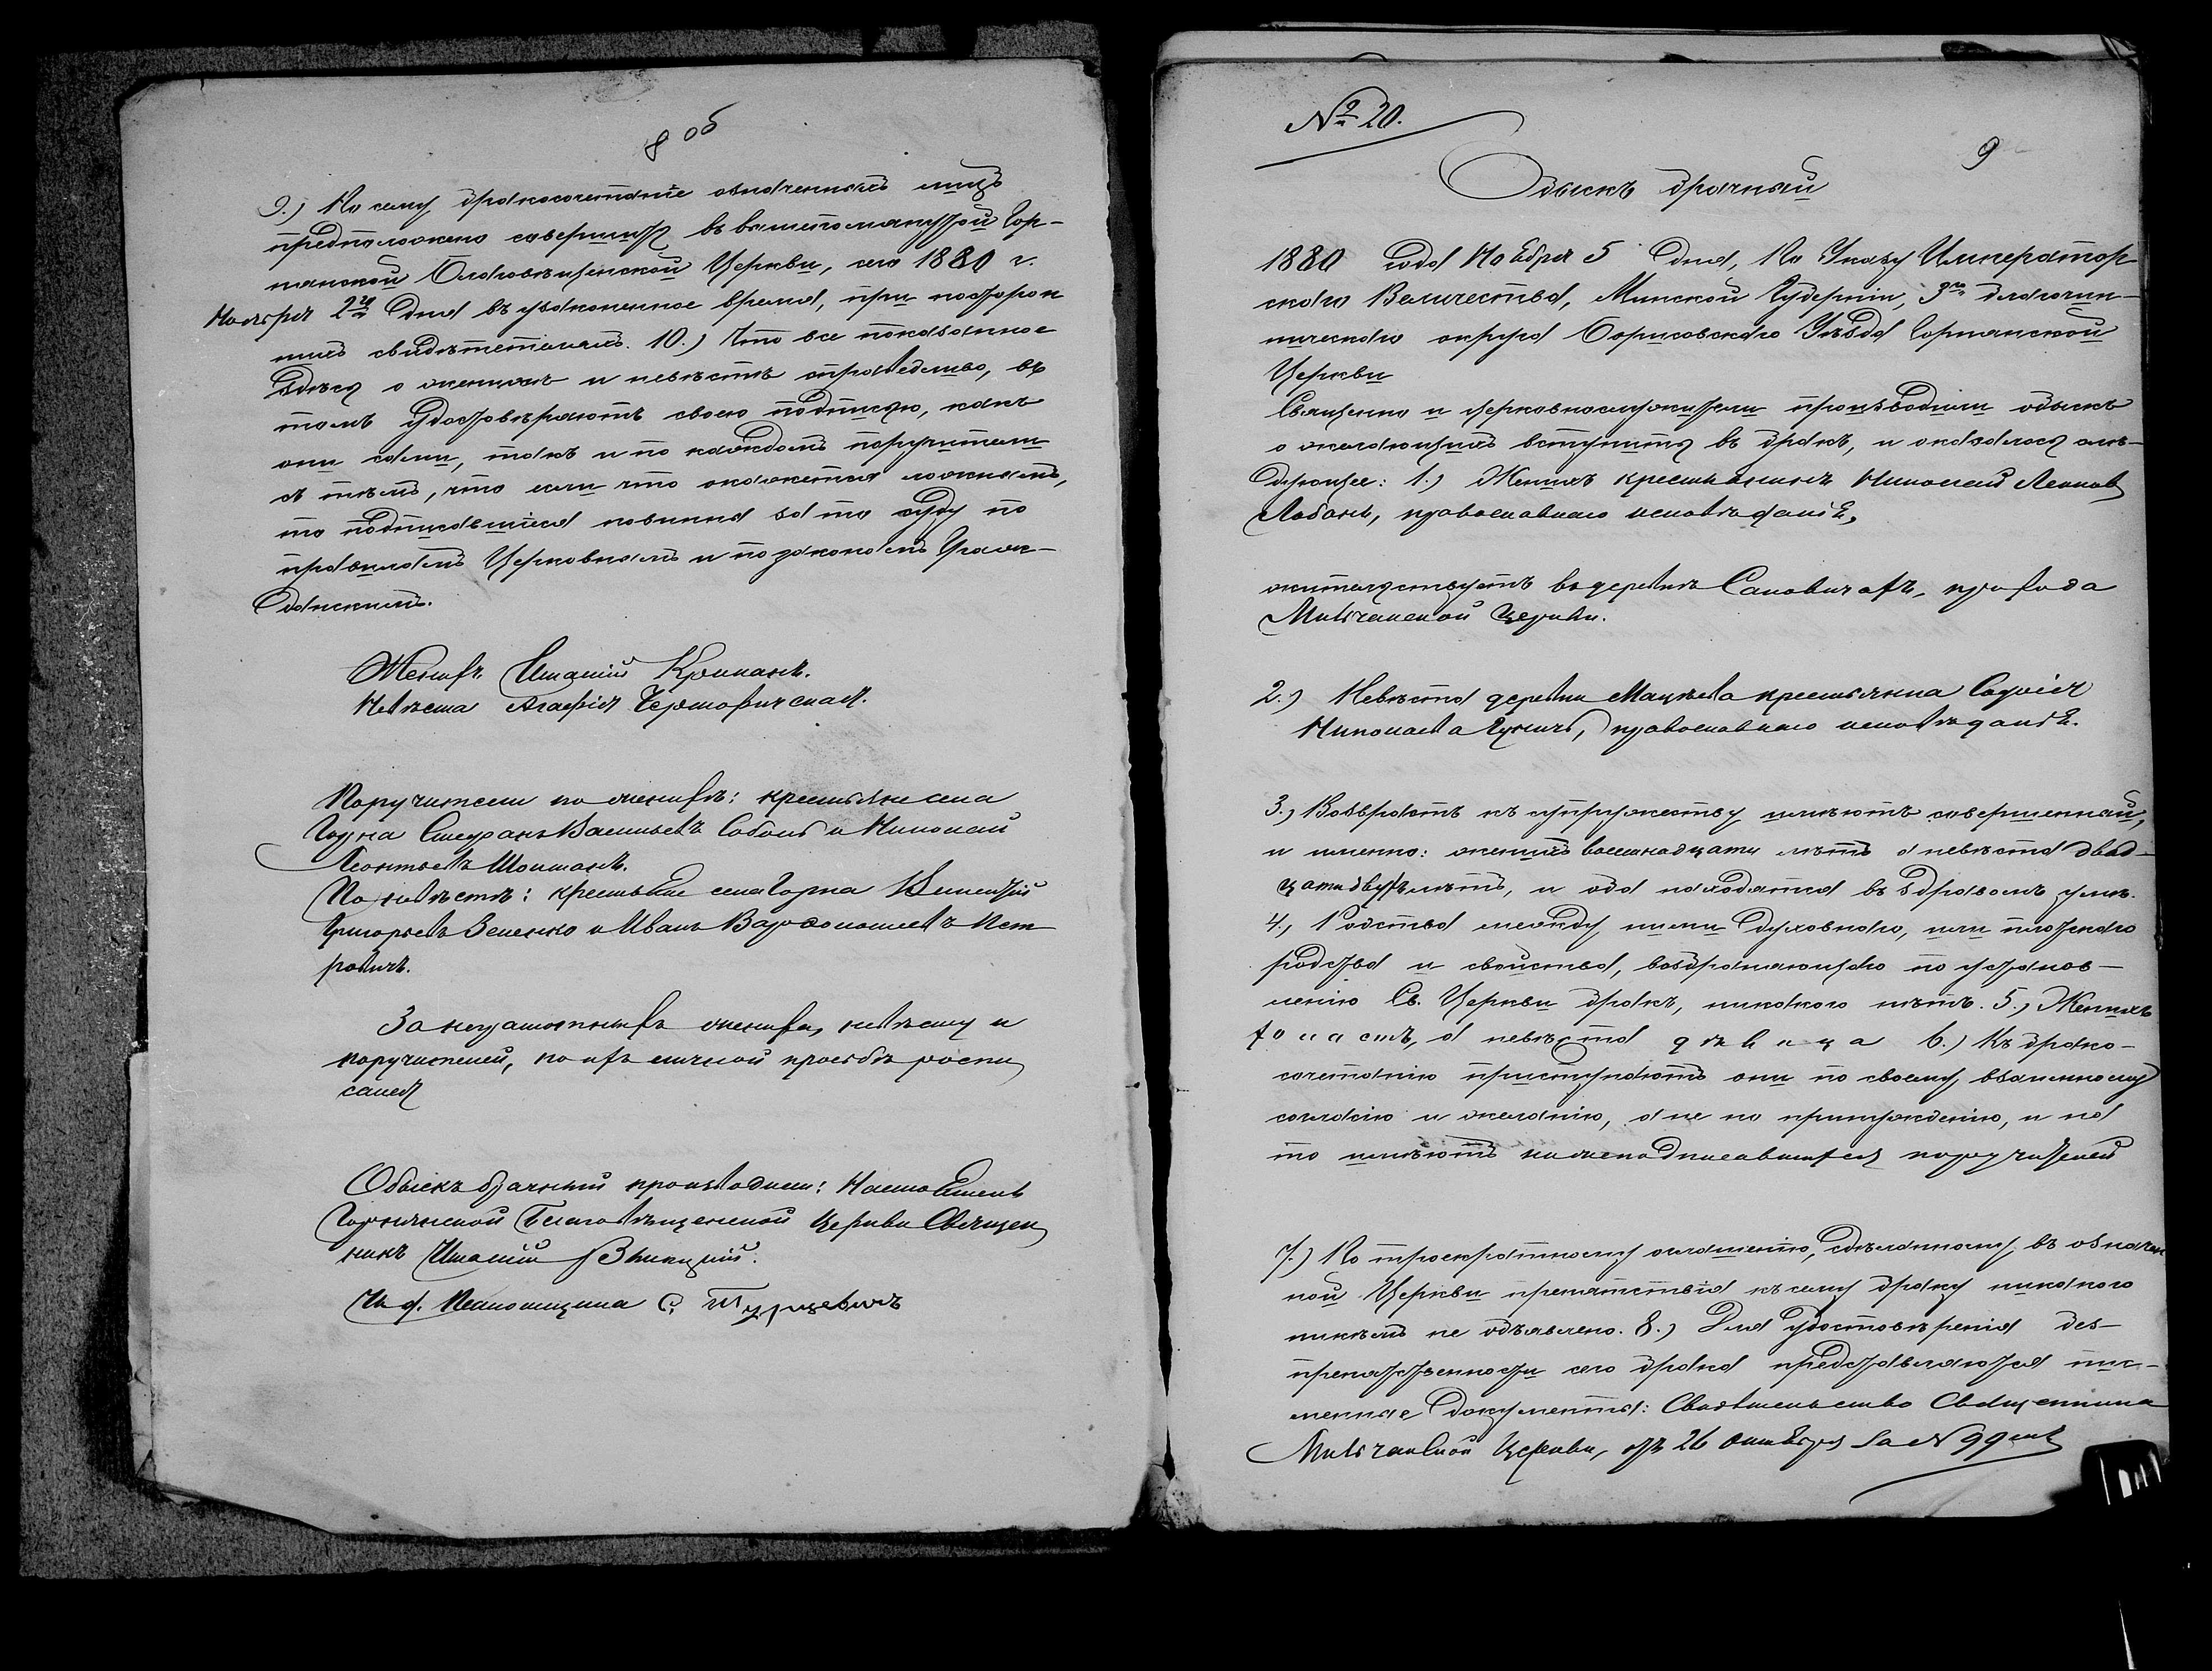 8 об
9.) По сему бракосочетаніе означенныхъ лицъ
предположено совершить въ вышепомянутой Гор-
нянской Благовѣщенской Церкви, сего 1880 г.
Ноября 2го дня въ узаконенное время, при посторон
нихъ свидѣтеляхъ. 10.) Что все показанное
здѣсь о женихѣ и невѣстѣ справедливо, въ
томъ удостовѣряютъ своею подписью, какъ
они сами, такъ и по каждомъ поручители
съ тѣмъ, что если что окажется ложнымъ,
то подписавшіеся повинны за то суду по
правиламъ Церковнымъ и по законамъ Граж-
данскимъ.
Женихъ Игнатій
Невѣста Агафія
Поручители по женихѣ: крестьяне села
Горна Стефанъ Васильевъ Соболь и Николай
Леонтьевъ
По невѣстѣ: крестьяне села Горна
Григорьевъ Зеленко и Иванъ Варфоломеевъ Пет
ровичъ.
За неграмотныхъ жениха, невѣсту и
поручителей, по ихъ личной просьбѣ роспи
сался
Обыскъ брачный производили: Настоятель
Горнянской Благовѣщенской Церкви Священ
никъ
И. д. Псаломщика С.
№ 20.
9
Обыскъ брачный
1880 года Ноября 5 дня, По Указу Император
скаго Величества, Минской Губерніи, 3го благочин-
ническаго округа Борисовскаго Уѣзда Горнянской
Церкви
Священно и церковнослужители производили обыскъ
о желающихъ вступить въ бракъ, и оказалось слѣ-
дующее: 1.) Женихъ крестьянинъ Николай
Лобанъ, православнаго исповѣданія,
жительствуетъ въ деревнѣ прихода
Мильчанской Церкви.
2.) Невѣста деревни крестьянка Софія
Николаева православнаго исповѣданія.
3.) Возврастъ къ супружеству имѣютъ совершенный,
и именно: женихъ восемнадцати лѣтъ а невѣста двад-
цати двухъ лѣтъ, и оба находятся въ здравомъ умѣ.
4., Родства между ними духовнаго, или плотскаго
родства и свойства, возбраняющаго по установ-
ленію Св. Церкви бракъ, никакого нѣтъ. 5.) Женихъ
холостъ, а невѣста дѣвица 6.) Къ брако-
сочетанію приступаютъ они по своему взаимному
согласію и желанію, а не по принужденію, и на
то имѣютъ нижеподписавшихся поручителей
7.) По троекратному оглашенію, сдѣланному въ означен
ной Церкви препятствія къ сему браку никакого
никѣмъ не объявлено. 8.) Для удостовѣренія без-
препятственности сего брака представляются пис-
менные документы: Свидѣтельство Священника
Мильчанской Церкви, отъ 26 Октября за N 99мъ